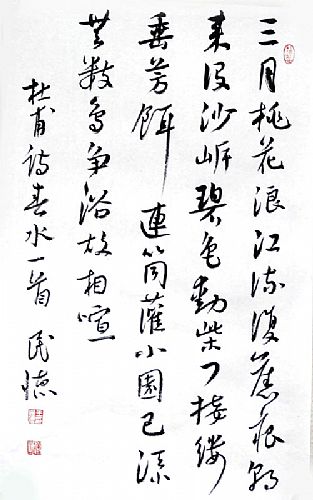 三月桃花浪江流復舊痕朝
来没沙岸碧色動柴门接縷
垂芳餌 連筒灌小園已添
無数鳥争浴故相喧
杜甫詩春水一首 民德